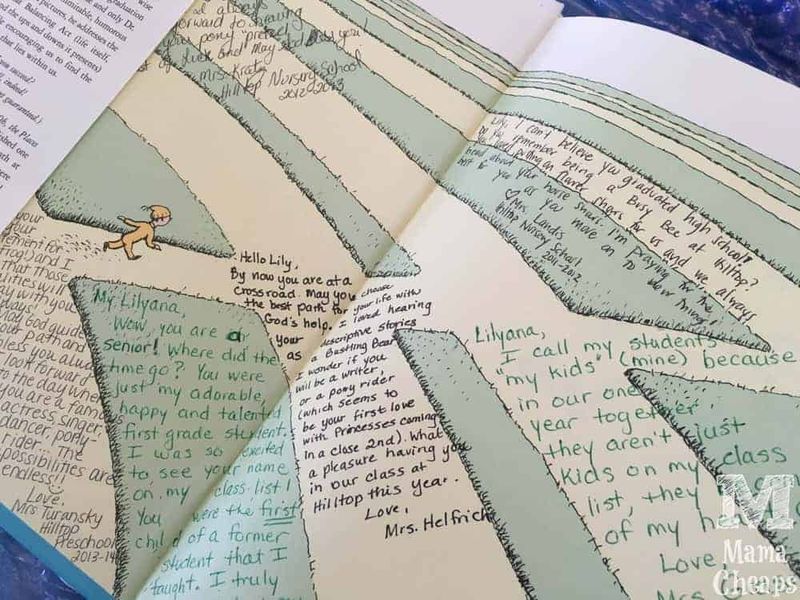 graduation
and only Dr.
humorous
pictures, he addresses the
Balancing Act (life itself,
and downs it presents)
encouraging us to find the
that lies within us.
indeed!
guaranteed.)
the Places
forward to
your pony "pretzel"
of luck and May God bless you!
Mrs. Kratz
Hilltop Nursery School
2012-2013
Lily, I can't believe you graduated high school!
Do you remember being a Busy Bee at Hilltop?
for us and we always
heard about your horse I'm praying for the
best for you as you move on to
♡ Mrs. Landis
Hilltop Nursery School
2011-2012
your
God) and I
that those
with you
days!
God guide
path and
bless you
look forward
to the day when
you are a famous
actress, singer,
dancer, pony
rider. The
possibilities are
endless!!
Love,
Mrs Turansky
Hilltop
Preschool
2013-14
My Lilyana,
Wow, you are a
senior! Where did the
time go? You were
just my adorable,
happy and talented
first grade student.
I was so excited
to see your name
on my class list!
You were the first
child of a former
student that I
taught. I truly
Hello Lily,
By now you are at a
crossroad. May you choose
the best path for your life with
God's help. I loved hearing
your descriptive stories
as a Bustling Bear
wonder if you
will be a writer,
or a pony rider
(which seems to
be your first love
with Princesses coming
in a close 2nd). What
a pleasure having you
in our class at
Hilltop this year.
Love,
Mrs. Helfrich
Lilyana,
I call my students
"my kids" (mine) because
in our one
year together
they aren't just
kids on my class
list, they
of my
Love,
Mrs
M
Mama
Cheaps